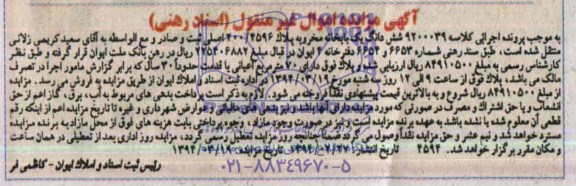 آگهی مزایده اموال غیر منقول (اسناد رهنی)
به موجب پرونده اجرائی کلاسه ۹۲۰۰۰۳۹ شش دانگ یک بابخانه مخروبه پلاک ۴۰۰-۴۵۹۶ اصلی ثبت و صادر و مع الواسطه به آقای سعید کریمی زلانی
منتقل شده است، طبق سند رهنی شماره ۶۶۵۳ و ۶۶۵۴ دفترخانه ۶ ایوان در قبال مبلغ ۲۲۵۴۰۶۸۸۲ ریال در رهن بانک ملت ایوان قرار گرفته و طبق نظر
کارشناس رسمی به مبلغ ۸۴۹۱۰۵۰۰ ریال ارزیابی شد و پلاک فوق دارای ۷۰ مترمربع اعیانی با قدمت حدوداً ۳۰ سال که برابر گزارش مامور اجرا در تصرف
مالک می باشد، پلاک فوق از ساعت ۹ الی ۱۲ روز سه شنبه مورخ ۱۳۹۴/۰۳/۱۹ در اداره ثبت اسناد و املاک ایوان از طریق مزایده به فروش می رسد. مزایده
از مبلغ ۸۴۹۱۰۵۰۰ ریال شروع و به بالاترین قیمت پیشنهادی نقداً فروخته می شود. لازم به ذکر است پرداخت بدهی های مربوط به آب، برق، گاز اعم از حق
انشعاب و یا حق اشتراک و مصرف در صورتی که مورد مزایده دارای آنها باشد و نیز بدهی های مالیاتی و عوارض شهرداری و غیره تا تاریخ مزایده اعم از اینکه رقم
قطعی آن معلوم شده یا نشده باشد به عهده برنده مزایده است و نیز در صورت وجود مازاد، وجوه پرداختی بابت هزینه های فوق از محل مازاد به برنده مزایده
مسترد خواهد شد و نیم عشر و حق مزایده نقداً وصول می گردد. ضمناً چنانچه روز مزایده تعطیل رسمی گردد، مزایده روز اداری بعد از تعطیلی در همان ساعت
و مکان مقرر برگزار خواهد شد. ۴۵۹۴ تاریخ انتشار: ۱۳۹۴/۰۲/۲۷ تاریخ مزایده: ۱۳۹۴/۰۳/۱۹
رئیس ثبت اسناد و املاک ایوان - کاظمی فر
۰۲۱-۸۸۳۴۹۶۷۰-۵